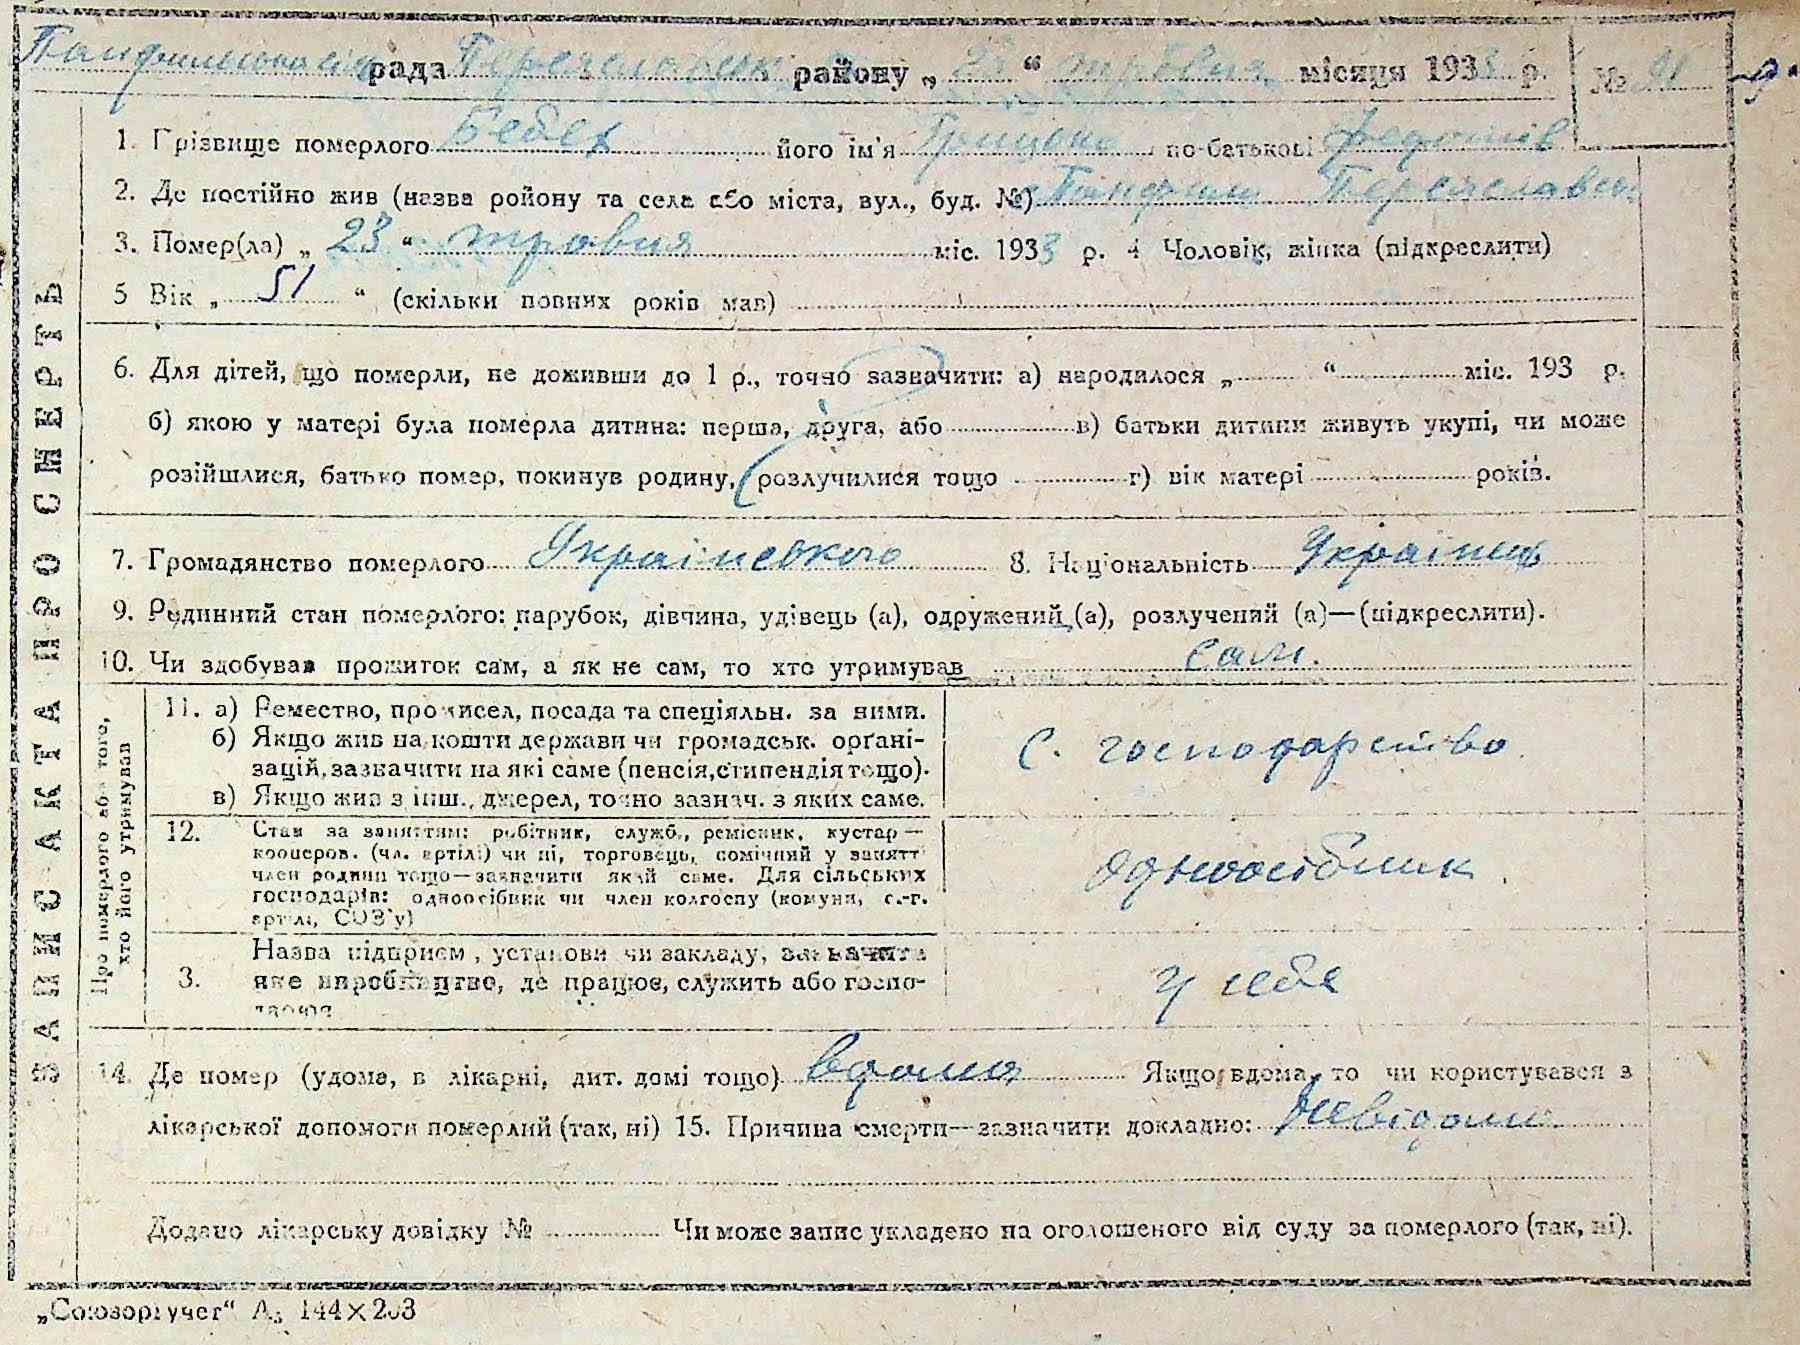 Панфильська сіл рада Переяславськ району „ 23 “ травня місяця 1933 р. № 91
ЗАПИС АКТА ПРО СМЕРТЬ
1. Прізвище померлого Бебех його ім'я Грицько по-батькові Федотів
2. Де постійно жив (назва ройону та села або міста, вул., буд. №) Панфили Переяславськ.
3. Помер(ла) „ 23 “ травня міс. 1933 р. 4 Чоловік, жінка (підкреслити)
5 Вік „ 51 “ (скільки повних років мав)
6. Для дітей, що померли, не доживши до 1 р., точно зазначити: а) народилося „ “ міс. 193 р.
б) якою у матері була померла дитина: перша, друга, або в) батьки дитини живуть укупі, чи може
розійшлися, батько помер, покинув родину, розлучилися тощо г) вік матері років.
7. Громадянство померлого Українського 8. Національність Українець
9. Родинний стан померлого: парубок, дівчина, удівець (а), одружений (а), розлучений (а)—(підкреслити).
10. Чи здобував прожиток сам, а як не сам, то хто утримував сам.
Про померлого або того, хто його утримував
11. а) Ремество, промисел, посада та спеціяльн. за ними.
б) Якщо жив на кошти держави чи громадськ. органі-
зацій, зазначити на які саме (пенсія, стипендія тощо).
в) Якщо жив з інш., джерел, точно зазнач. з яких саме.
С. господарство
12. Стан за заняттям: робітник, служб., ремісник, кустар —
кооперов. (чл. артілі) чи ні, торговець, помічний у занятті
член родини тощо—зазначити який саме. Для сільських
господарів: одноосібник чи член колгоспу (комуни, с.-г.
артілі, СОЗ'у)
одноосібник
3. Назва підприєм, установи чи закладу, зазначити
яке виробництво, де працює, служить або госпо-
дарює
у себе
14. Де помер (удома, в лікарні, дит. домі тощо) вдома Якщо вдома, то чи користувався з
лікарської допомоги померлий (так, ні) 15. Причина смерти—зазначити докладно: Невідома
Додано лікарську довідку № Чи може запис укладено на оголошеного від суду за померлого (так, ні).
„Союзоргучет“ А₅ 144×203